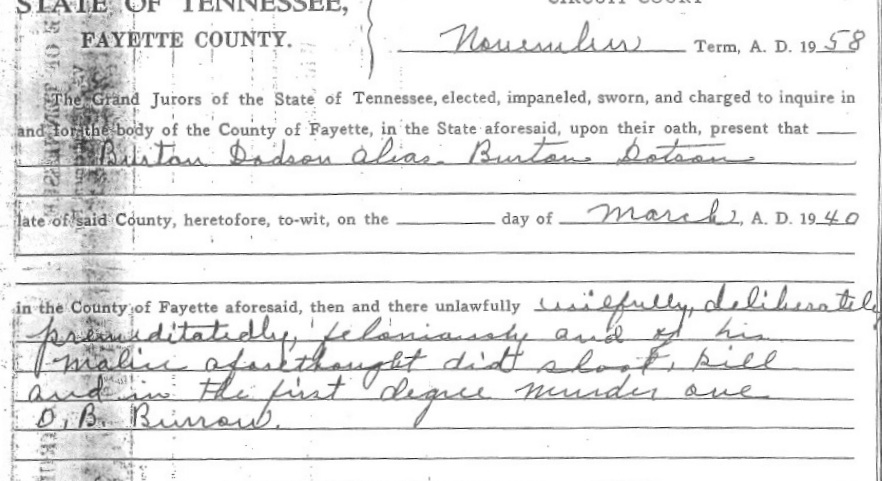 STATE OF TENNESSEE,
CIRCUIT COURT
FAYETTE COUNTY.
November Term, A. D. 1958
The Grand Jurors of the State of Tennessee, elected, impaneled, sworn, and charged to inquire in
and for the body of the County of Fayette, in the State aforesaid, upon their oath, present that
Burton Dodson alias Burton Dotson
late of said County, heretofore, to-wit, on the day of March, A. D. 1940
in the County of Fayette aforesaid, then and there unlawfully wilfully, deliberately
premeditatedly, feloniously and of his
malice aforethought did shoot, kill
and in the first degree murder one
D. B. Burrow.